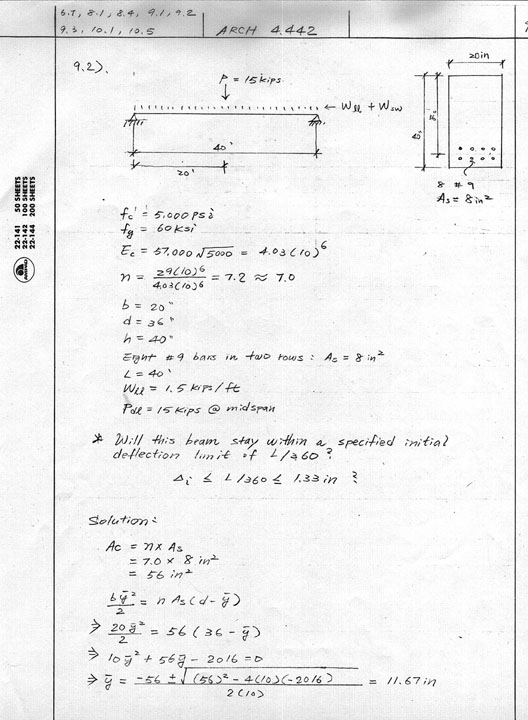 6.7, 8.1, 8.4, 9.1, 9.2
9.3, 10.1, 10.5
ARCH 4.442
9.2).
P = 15 kips
← Wll + Wsw
40'
20'
20in
8 #9
As = 8in²
22-141 50 SHEETS
22-142 100 SHEETS
22-144 200 SHEETS
fc' = 5,000 psi
fy = 60 ksi
Ec = 57,000 √5000 = 4.03(10)⁶
n = 29(10)⁶ / 4.03(10)⁶ = 7.2 ≈ 7.0
b = 20"
d = 36"
h = 40"
Eight #9 bars in two rows : As = 8 in²
L = 40'
Wll = 1.5 kips/ft
Pdl = 15 kips @ midspan
* Will this beam stay within a specified initial
deflection limit of L/360 ?
Δi ≤ L/360 ≤ 1.33 in ?
Solution:
Ac = n x As
= 7.0 x 8 in²
= 56 in²
bȳ²/2 = n As (d - ȳ)
⇒ 20ȳ²/2 = 56 (36 - ȳ)
⇒ 10ȳ² + 56ȳ - 2016 = 0
⇒ ȳ = -56 ± √(56)² - 4(10)(-2016) / 2(10) = 11.67 in